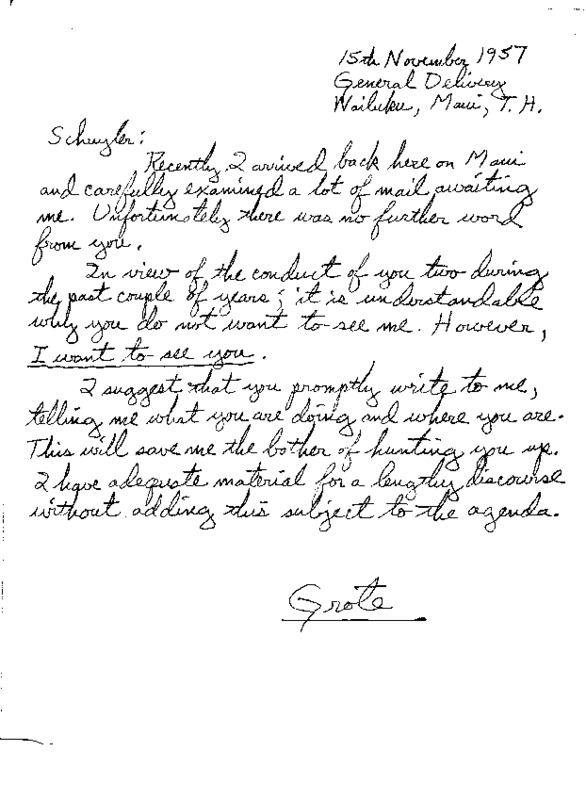 15th November 1957
General Delivery
Wailuku, Maui, T.H.
Schuyler:
Recently I arrived back here on Maui
and carefully examined a lot of mail awaiting
me. Unfortunately there was no further word
from you.
In view of the conduct of you two during
the past couple of years; it is understandable
why you do not want to see me. However,
I want to see you.
I suggest that you promptly write to me,
telling me what you are doing and where you are.
This will save me the bother of hunting you up.
I have adequate material for a lengthy discourse
without adding this subject to the agenda.
Grote